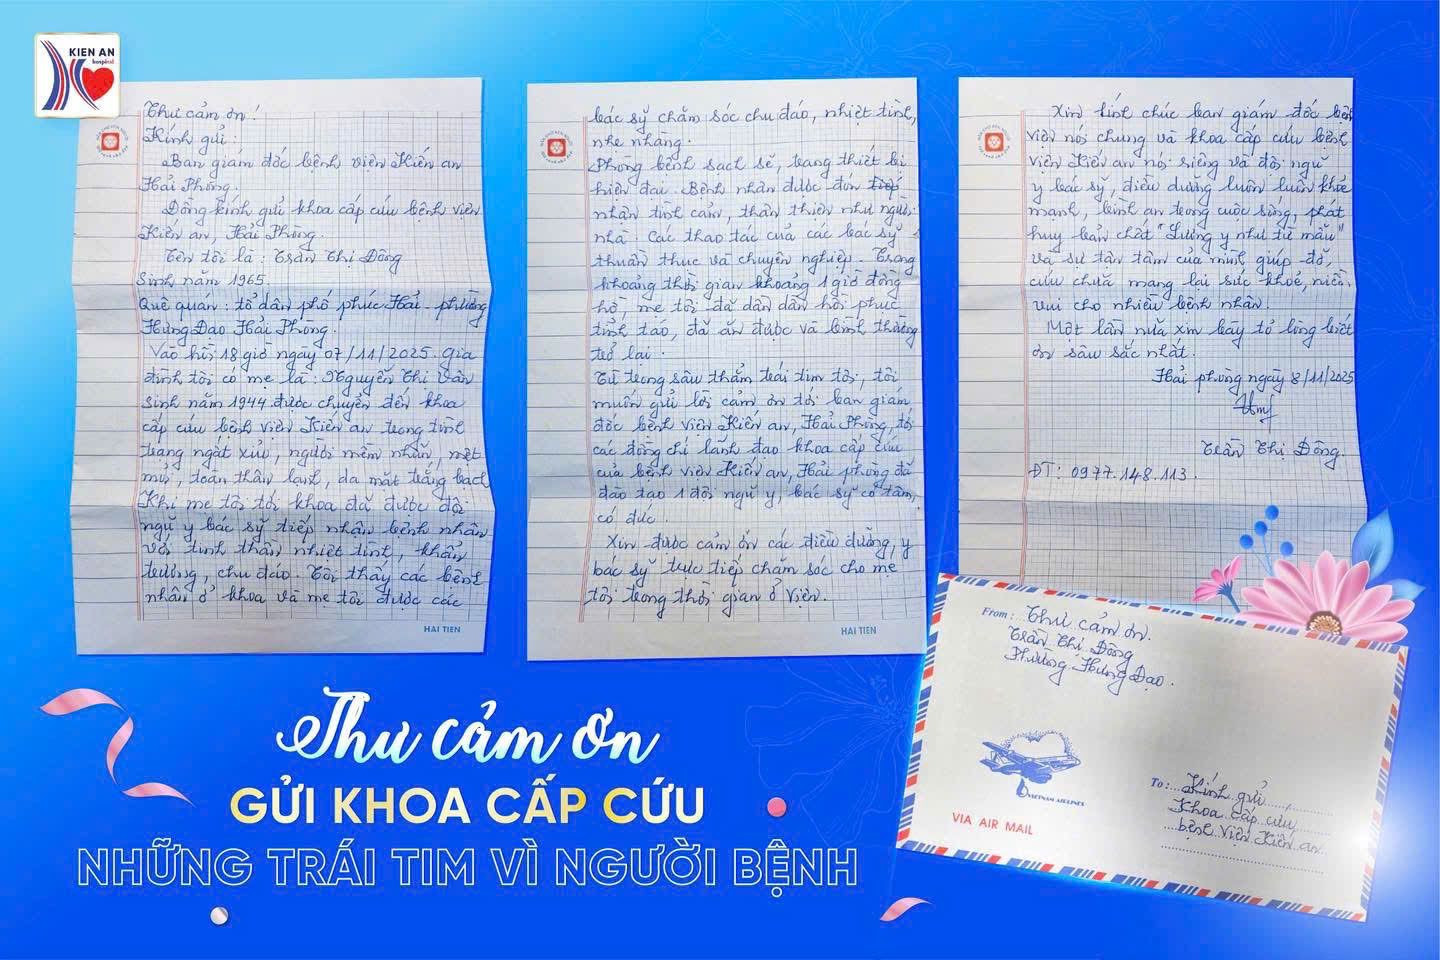 KIEN AN
hospital
Thư cảm ơn!
Kính gửi:
Ban giám đốc bệnh viện Kiến an
Hải Phòng.
Đồng kính gửi khoa cấp cứu bệnh viện
Kiến an, Hải Phòng.
Tên tôi là: Trần Thị Đông
Sinh năm 1965.
Quê quán: tổ dân phố phúc Hải - phường
Hưng Đạo Hải Phòng.
Vào hồi 18 giờ ngày 07/11/2025. Gia
đình tôi có mẹ là: Nguyễn Thị Vân
Sinh năm 1944 được chuyển đến khoa
cấp cứu bệnh viện Kiến an trong tình
trạng ngất xỉu, người mềm nhũn, mệt
mỏi, toàn thân lạnh, da mặt trắng bạch
Khi mẹ tôi tới khoa đã được đội
ngũ y bác sỹ tiếp nhận bệnh nhân
với tinh thần nhiệt tình, khẩn
trương, chu đáo. Tôi thấy các bệnh
nhân ở khoa và mẹ tôi được các
HAI TIEN
bác sỹ chăm sóc chu đáo, nhiệt tình,
nhẹ nhàng.
Phòng bệnh sạch sẽ, trang thiết bị
hiện đại. Bệnh nhân được đón tiếp
nhận tình cảm, thân thiện như người
nhà. Các thao tác của các bác sỹ
thuần thục và chuyên nghiệp. Trong
khoảng thời gian khoảng 1 giờ đồng
hồ, mẹ tôi đã dần dần hồi phục
tỉnh táo, đã ăn được và bình thường
trở lại.
Từ trong sâu thẳm trái tim tôi, tôi
muốn gửi lời cảm ơn tới ban giám
đốc bệnh viện Kiến an, Hải Phòng, tới
các đồng chí lãnh đạo khoa cấp cứu
của bệnh viện Kiến an, Hải phòng đã
đào tạo 1 đội ngũ y, bác sỹ có tâm,
có đức.
Xin được cảm ơn các điều dưỡng, y
bác sỹ trực tiếp chăm sóc cho mẹ
tôi trong thời gian ở viện.
HAI TIEN
Xin kính chúc ban giám đốc bệnh
viện nói chung và khoa cấp cứu bệnh
viện Kiến an nói riêng và đội ngũ
y bác sỹ, điều dưỡng luôn luôn khỏe
mạnh, bình an trong cuộc sống, phát
huy bản chất "Lương y như từ mẫu"
và sự tận tâm của mình giúp đỡ,
cứu chữa mang lại sức khoẻ, niềm
vui cho nhiều bệnh nhân.
Một lần nữa xin bày tỏ lòng biết
ơn sâu sắc nhất.
Hải phòng ngày 8/11/2025
Trần Thị Đông.
ĐT: 0977.148.113.
From: Thư cảm ơn.
Trần Thị Đông
Phường Hưng Đạo.
VIETNAM AIRLINES
VIA AIR MAIL
To: Kính gửi
Khoa cấp cứu
bệnh viện Kiến an
Thư cảm ơn
GỬI KHOA CẤP CỨU
NHỮNG TRÁI TIM VÌ NGƯỜI BỆNH